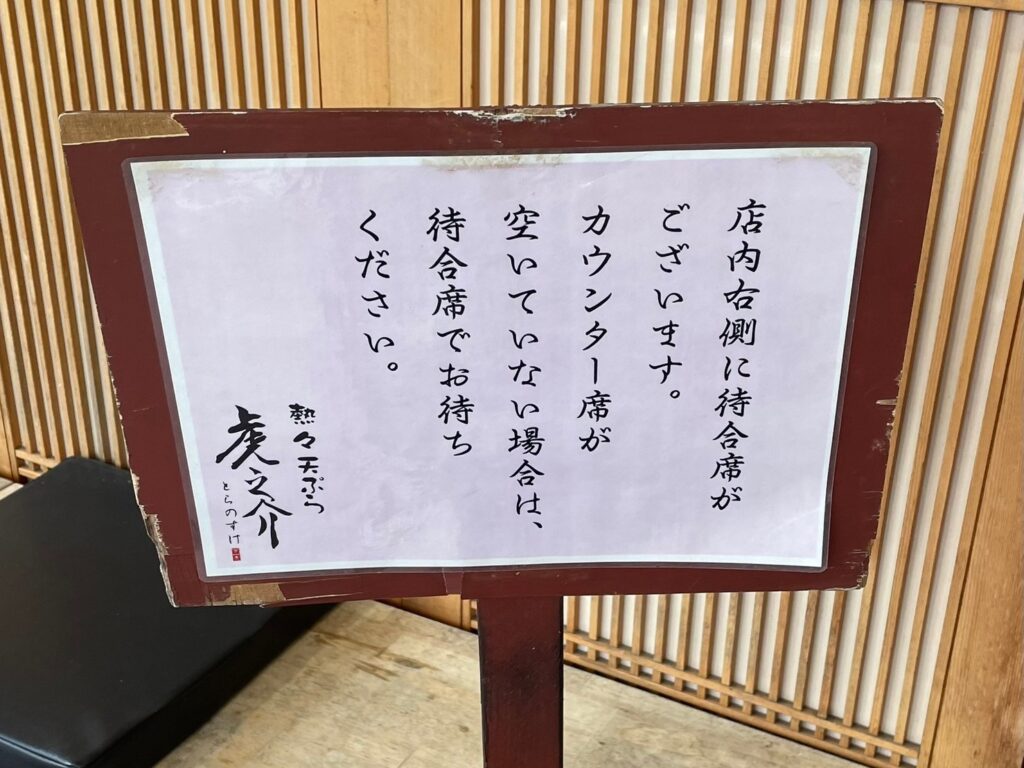 店内右側に待合席が
ございます。
カウンター席が
空いていない場合は、
待合席でお待ち
ください。
熱々天ぷら
虎之介
とらのすけ